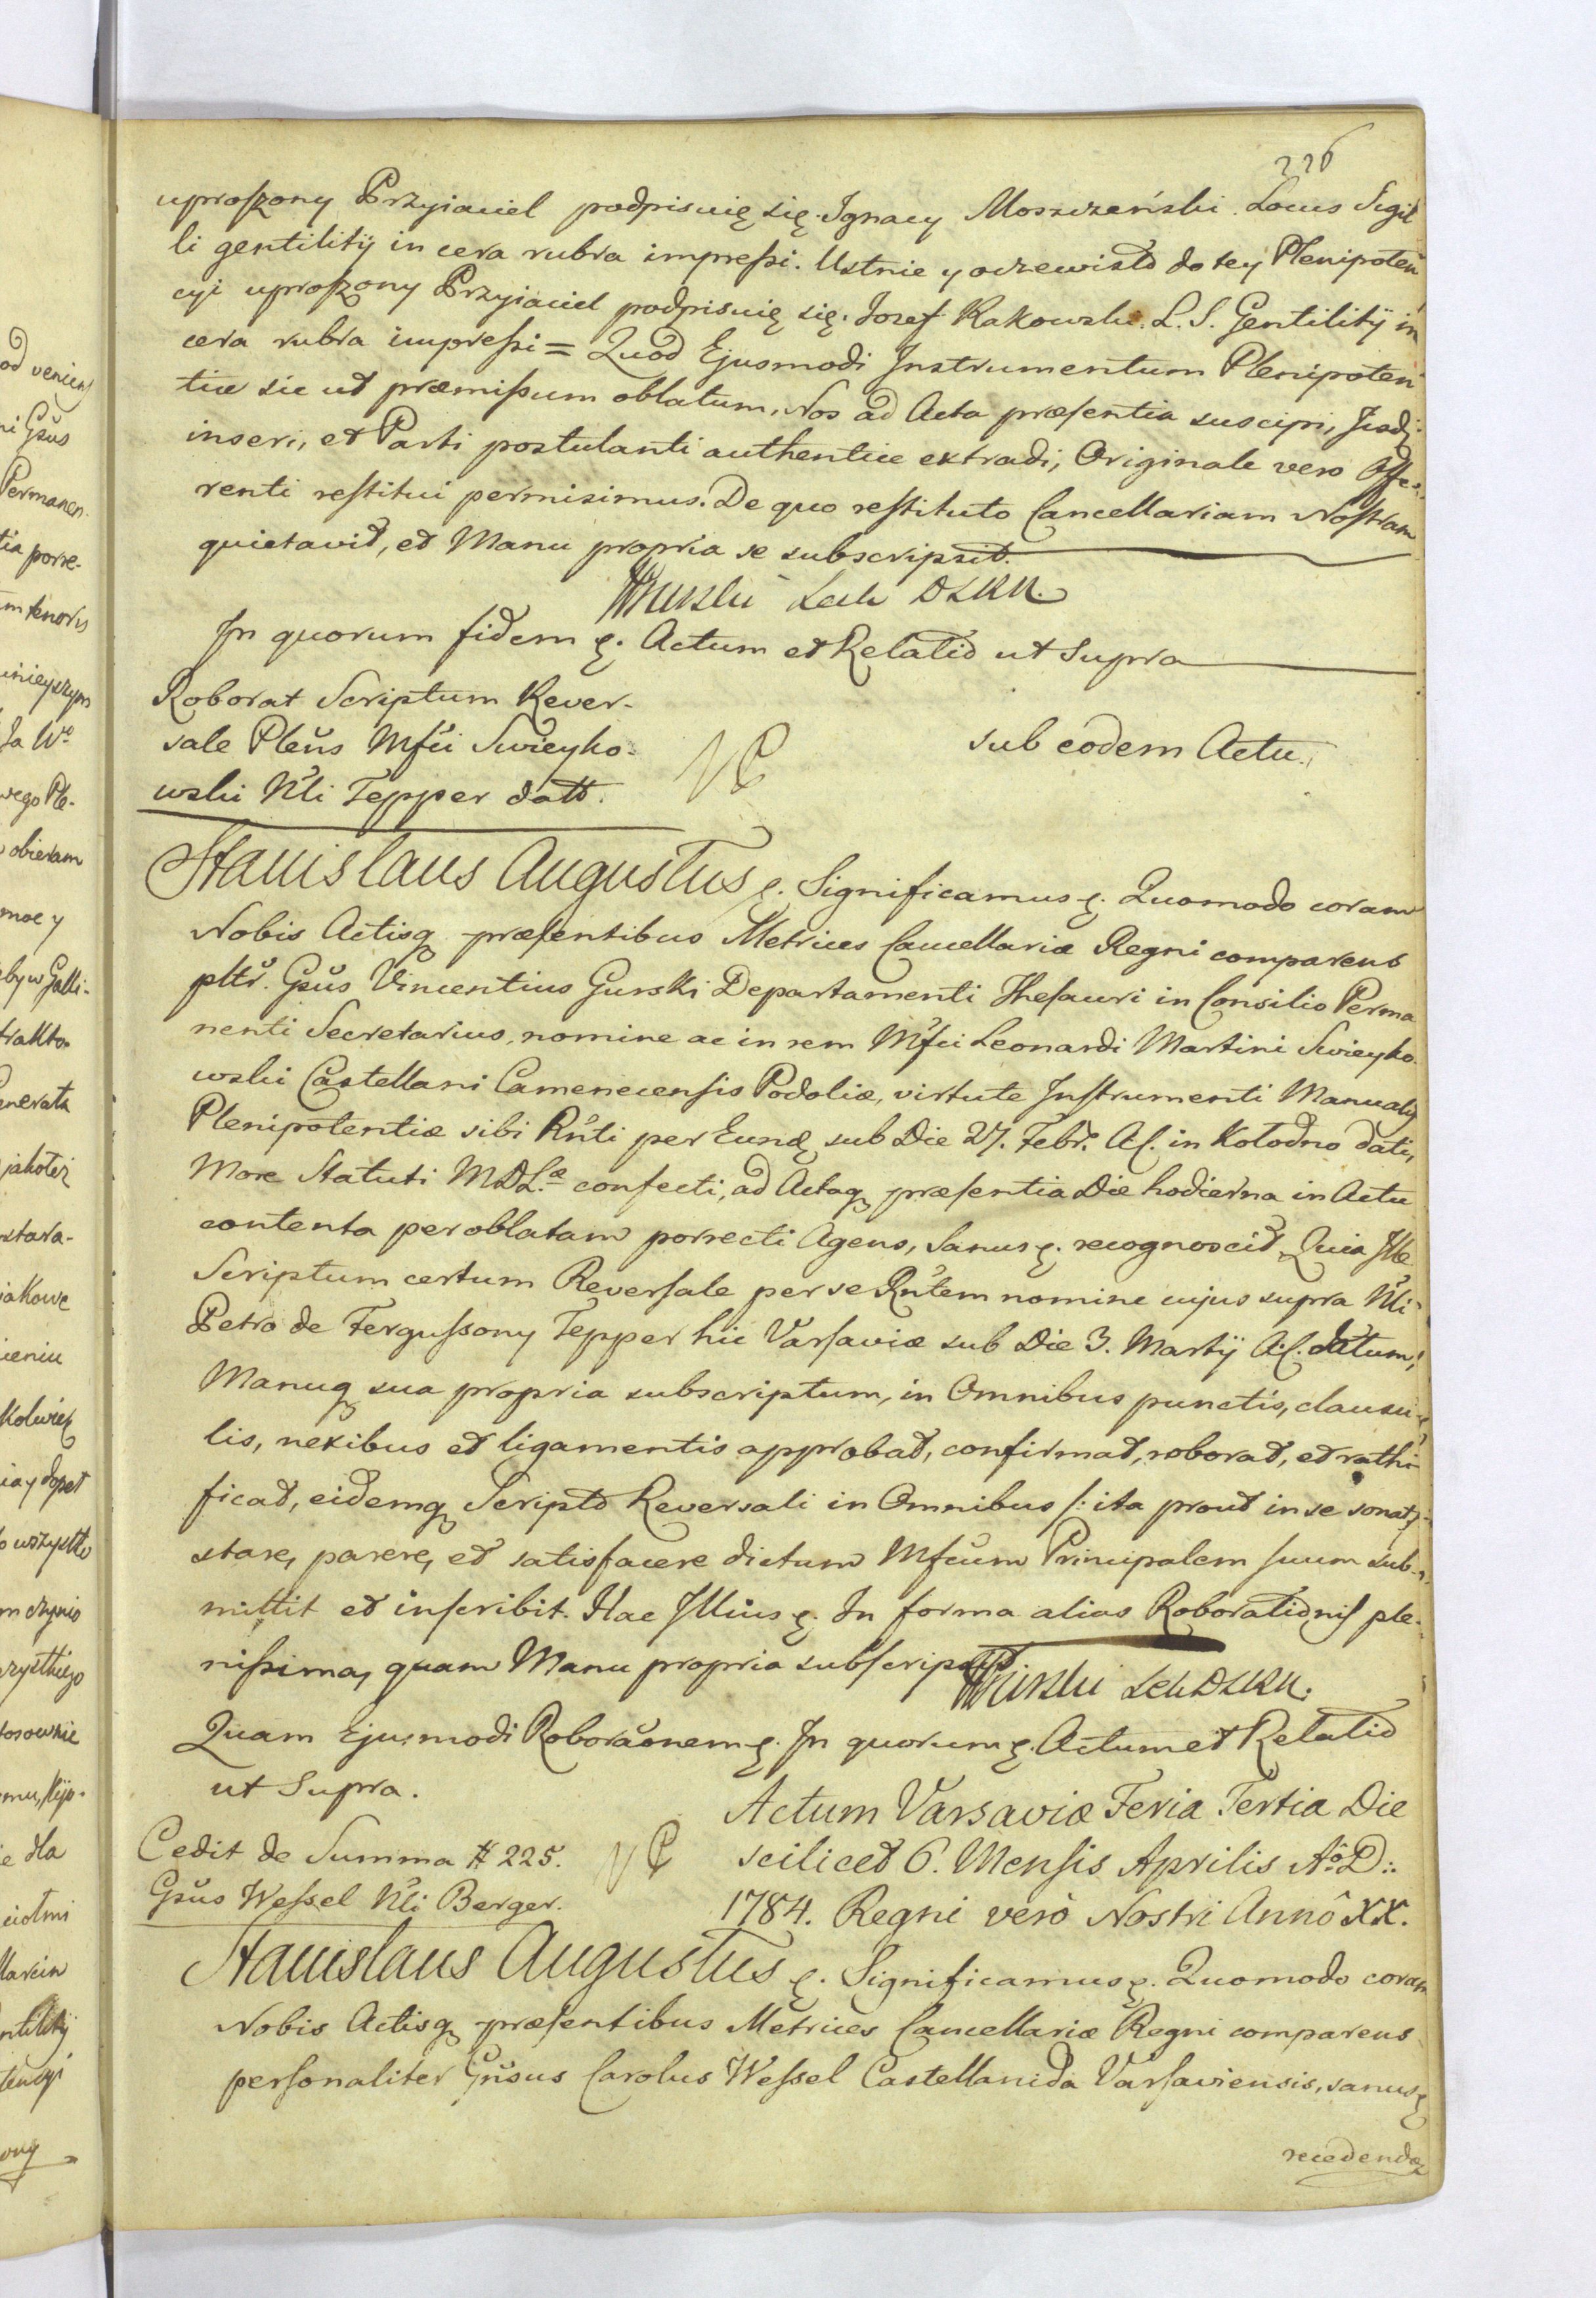 226
uproszony Przyiaciel podpisuię się. Ignacy Moszczeński. Locus Sigil
li gentilitij in cera rubra impressi. Ustnie y oczewisto do tey Plenipoten
cyi uproszony Przyiaciel podpisuię się. Jozef Rakowski. L. S. Gentilitij in
cera rubra impressi = Quod Ejusmodi Instrumentum Plenipoten
tiæ sic ut præmissum oblatum, Nos ad Acta præsentia suscipi, Iisdq
inseri, et Parti postulanti authentice extradi, Originale vero Offe-
renti restitui permisimus. De quo restituto Cancellariam Nostram
quietavit, et Manu propria se subscripsit.
In quorum fidem &. Actum et Relatio ut Supra
Roborat Scriptum Rever-
sale Plen̄s Mfci Swieyko-
wski Nli Tepper datt.
sub eodem Actu.
Stanislaus Augustus &. Significamus &. Quomodo coram
Nobis Actisq præsentibus Metrices Cancellariæ Regni comparens
pltr. Gsus Vincentius Gurski Departamenti Thesauri in Consilio Perma
nenti Secretarius, nomine ac in rem Mfci Leonardi Martini Swieyko-
wski Castellani Camenecensis Podoliæ, virtute Instrumenti Manualis
Plenipotentiæ sibi Rnti per Eund sub Die 27. Febr. A.C. in Kołodno dati,
More Statuti MDLæ confecti, ad Actaq præsentia Die hodierna in Actu
contenta per oblatam porrecti Agens, Sanus &. recognoscit Quia Ille
Scriptum certum Reversale per se Rntem nomine cujus supra Nli
Petro de Fergussony Tepper hic Varsaviæ sub Die 3. Martij A.C. datum,
Manuq sua propria subscriptum, in Omnibus punctis, clausu-
lis, nexibus et ligamentis approbat, confirmat, roborat, et rathi-
ficat, eidemq Scripto Reversali in Omnibus /: ita prout in se sonat :/
stare, parere, et satisfacere dictum Mfcum Principalem suum sub-
mittit et inscribit. Hac Illius &. In forma alias Roborationis ple-
nissima, quam Manu propria subscripsit.
Quam Ejusmodi Roboraōnem &. In quorum &. Actum et Relatio
ut Supra.
Actum Varsaviæ Feria Tertia Die
scilicet 6. Mensis Aprilis Aō D.:
1784. Regni verò Nostri Annô XX.
Cedit de Summa # 225.
Gsus Wessel Nli Berger.
Stanislaus Augustus &. Significamus &. Quomodo coram
Nobis Actisq præsentibus Metrices Cancellariæ Regni comparens
personaliter Gnsus Carolus Wessel Castellanida Varsaviensis, sanus &
recedendo